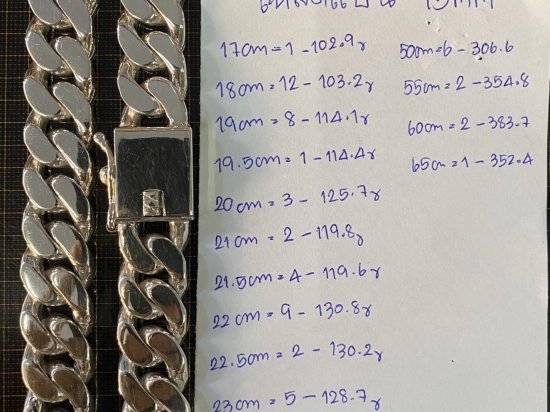 17cm = 1 - 102.9g
18cm = 12 - 103.2g
19cm = 8 - 114.1g
19.5cm = 1 - 114.4g
20cm = 3 - 125.7g
21cm = 2 - 119.8g
21.5cm = 4 - 119.6g
22cm = 9 - 130.8g
22.5cm = 2 - 130.2g
23cm = 5 - 128.7g
50cm = 6 - 306.6
55cm = 2 - 354.8
60cm = 2 - 383.7
65cm = 1 - 352.4